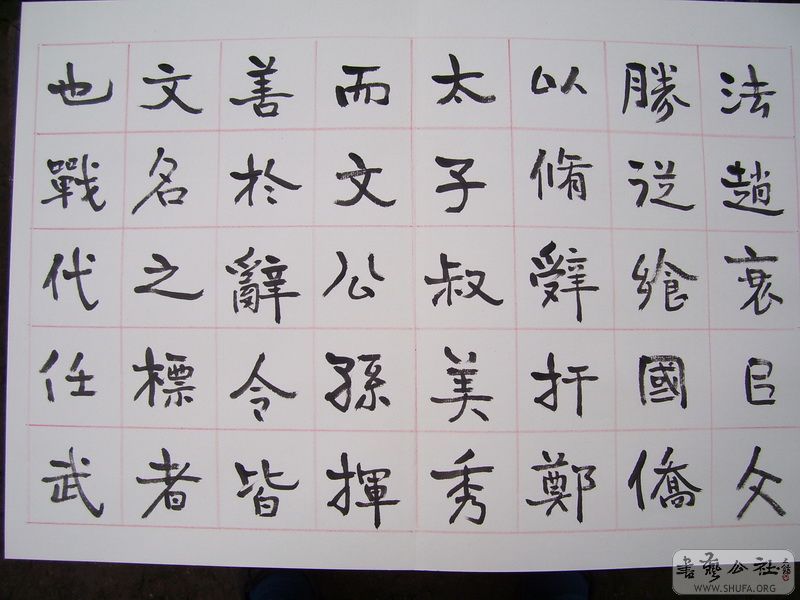 法趙衰㠯文
勝從飨國僑
以脩辭扞鄭
太子叔美秀
而文公孫揮
善於辭令皆
文名之標者
也戰代任武
書藝公社
WWW.SHUFA.ORG